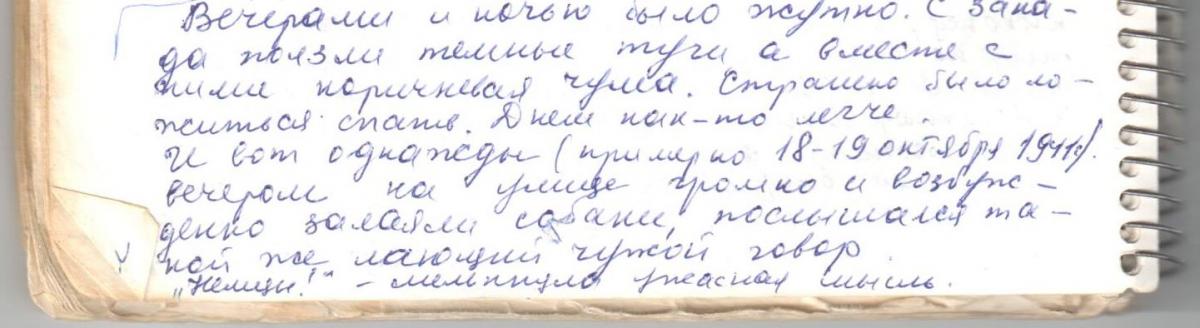 Вечерами и ночью было жутко. С запа-
да ползли темные тучи а вместе с
ними коричневая чума. Страшно было ло-
житься спать. Днем как-то легче.
И вот однажды (примерно 18-19 октября 1941г).
вечером на улице громко и возбуж-
денно залаяли собаки, послышался та-
кой же лающий чужой говор.
„Немцы!" - мелькнула ужасная мысль.